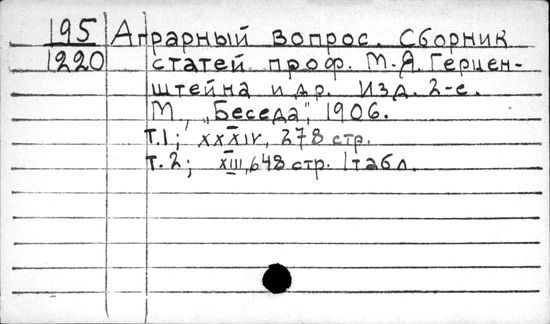 195 Аграрный вопрос. Сборник
1220 статей проф. М.Я. Герцен-
штейна и др. Изд. 2-е.
М., „Беседа", 1906.
т.1; XXXIV, 278 стр.
т.2; XIII, 648 стр. 1 табл.